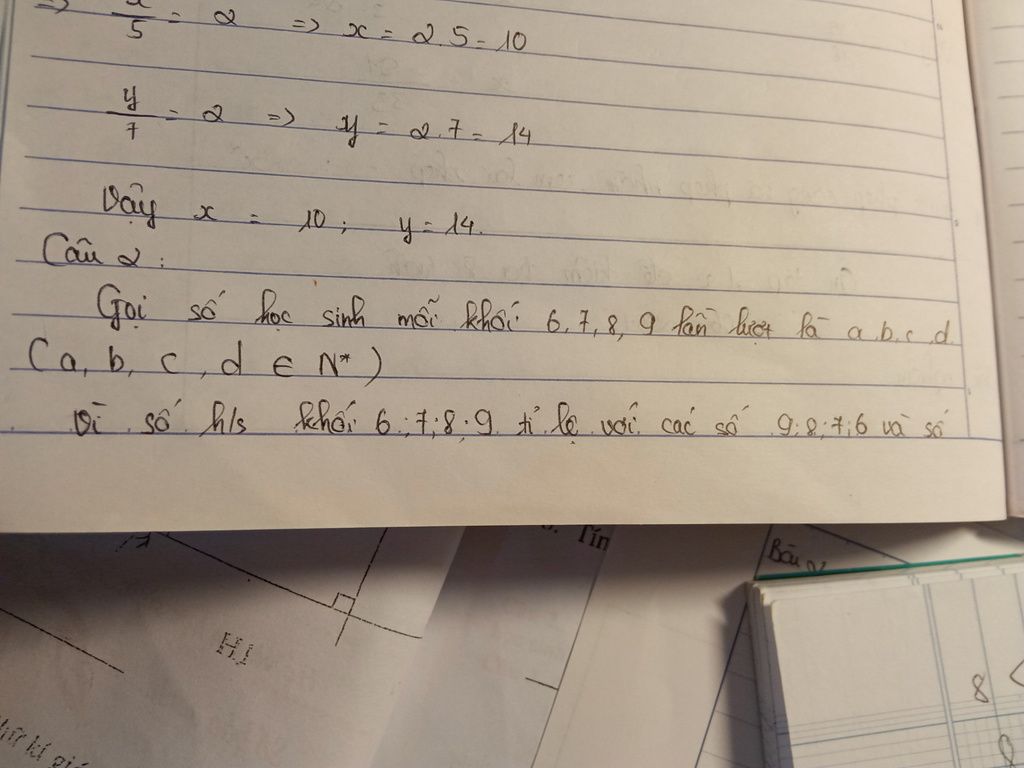 => x/5 = 2 => x = 2.5 = 10
y/7 = 2 => y = 2.7 = 14
Vậy x = 10; y = 14.
Câu 2:
Gọi số học sinh mỗi khối 6, 7, 8, 9 lần lượt là a, b, c, d.
(a, b, c, d ∈ N*)
Vì số h/s khối 6; 7; 8; 9 tỉ lệ với các số 9; 8; 7; 6 và số
Tín
Bài
H1
8